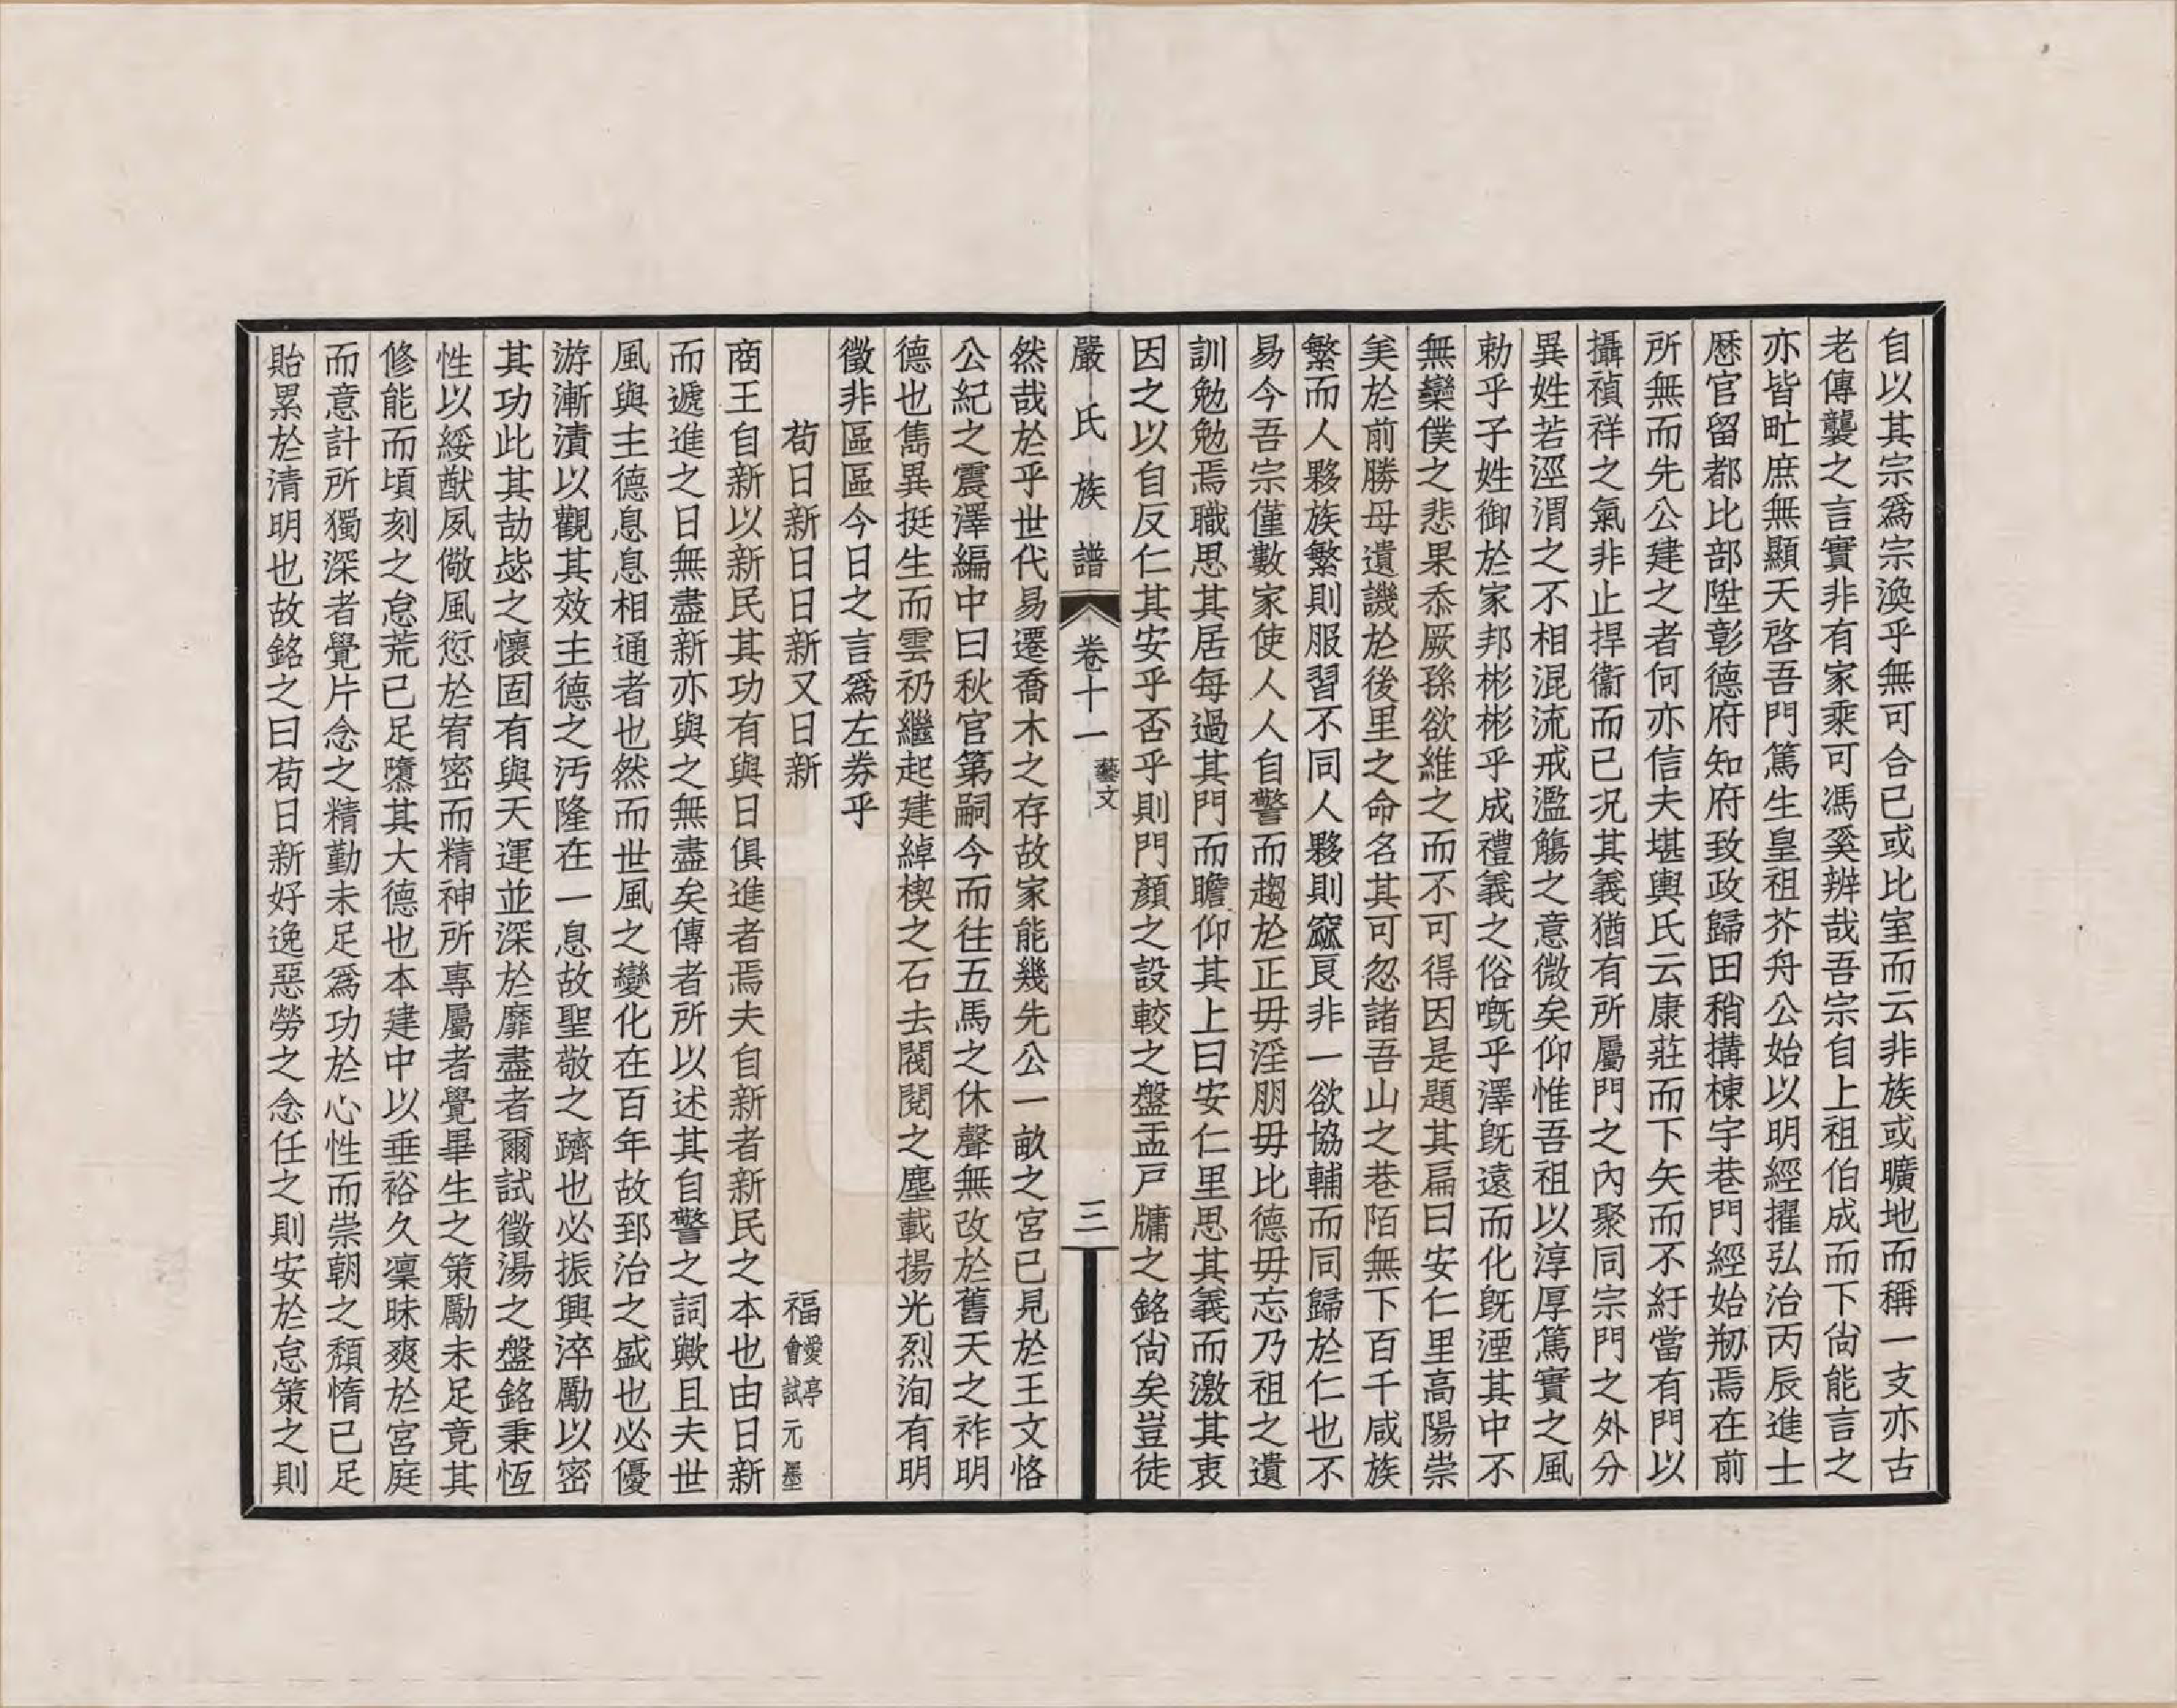 自以其宗爲宗渙乎無可合已或比室而云非族或曠地而稱一支亦古
老傳襲之言實非有家乘可馮奚辨哉吾宗自上祖伯成而下尙能言之
亦皆甿庶無顯天啓吾門篤生皇祖芥舟公始以明經擢弘治丙辰進士
歷官留都比部陞彰德府知府致政歸田稍搆棟宇巷門經始刱焉在前
所無而先公建之者何亦信夫堪輿氏云康莊而下矢而不紆當有門以
攝禎祥之氣非止捍衞而已况其義猶有所屬門之內聚同宗門之外分
異姓若涇渭之不相混流戒濫觴之意微矣仰惟吾祖以淳厚篤實之風
勅乎子姓御於家邦彬彬乎成禮義之俗嘅乎澤旣遠而化旣湮其中不
無欒僕之悲果忝厥孫欲維之而不可得因是題其扁曰安仁里高陽崇
美於前勝母遺譏於後里之命名其可忽諸吾山之巷陌無下百千咸族
繁而人夥族繁則服習不同人夥則窳良非一欲協輔而同歸於仁也不
易今吾宗僅數家使人人自警而趨於正毋淫朋毋比德毋忘乃祖之遺
訓勉勉焉職思其居每過其門而瞻仰其上曰安仁里思其義而激其衷
因之以自反仁其安乎否乎則門顏之設較之盤盂戸牖之銘尙矣豈徒
嚴氏族譜 卷十一 藝文 三
然哉於乎世代易遷喬木之存故家能幾先公一畝之宮已見於王文恪
公紀之震澤編中曰秋官第嗣今而往五馬之休聲無改於舊天之祚明
德也雋異挺生而雲礽繼起建綽楔之石去閥閱之塵載揚光烈洵有明
徵非區區今日之言爲左券乎
荀日新日日新又日新 福愛亭會試元墨
商王自新以新民其功有與日俱進者焉夫自新者新民之本也由日新
而遞進之日無盡新亦與之無盡矣傳者所以述其自警之詞歟且夫世
風與主德息息相通者也然而世風之變化在百年故郅治之盛也必優
游漸漬以觀其效主德之汚隆在一息故聖敬之躋也必振興淬勵以密
其功此其劼毖之懷固有與天運並深於靡盡者爾試徵湯之盤銘秉恆
性以綏猷夙儆風愆於宥密而精神所專屬者覺畢生之策勵未足竟其
修能而頃刻之怠荒已足隳其大德也本建中以垂裕久凜昧爽於宮庭
而意計所獨深者覺片念之精勤未足爲功於心性而崇朝之頽惰已足
貽累於清明也故銘之曰苟日新好逸惡勞之念任之則安於怠策之則